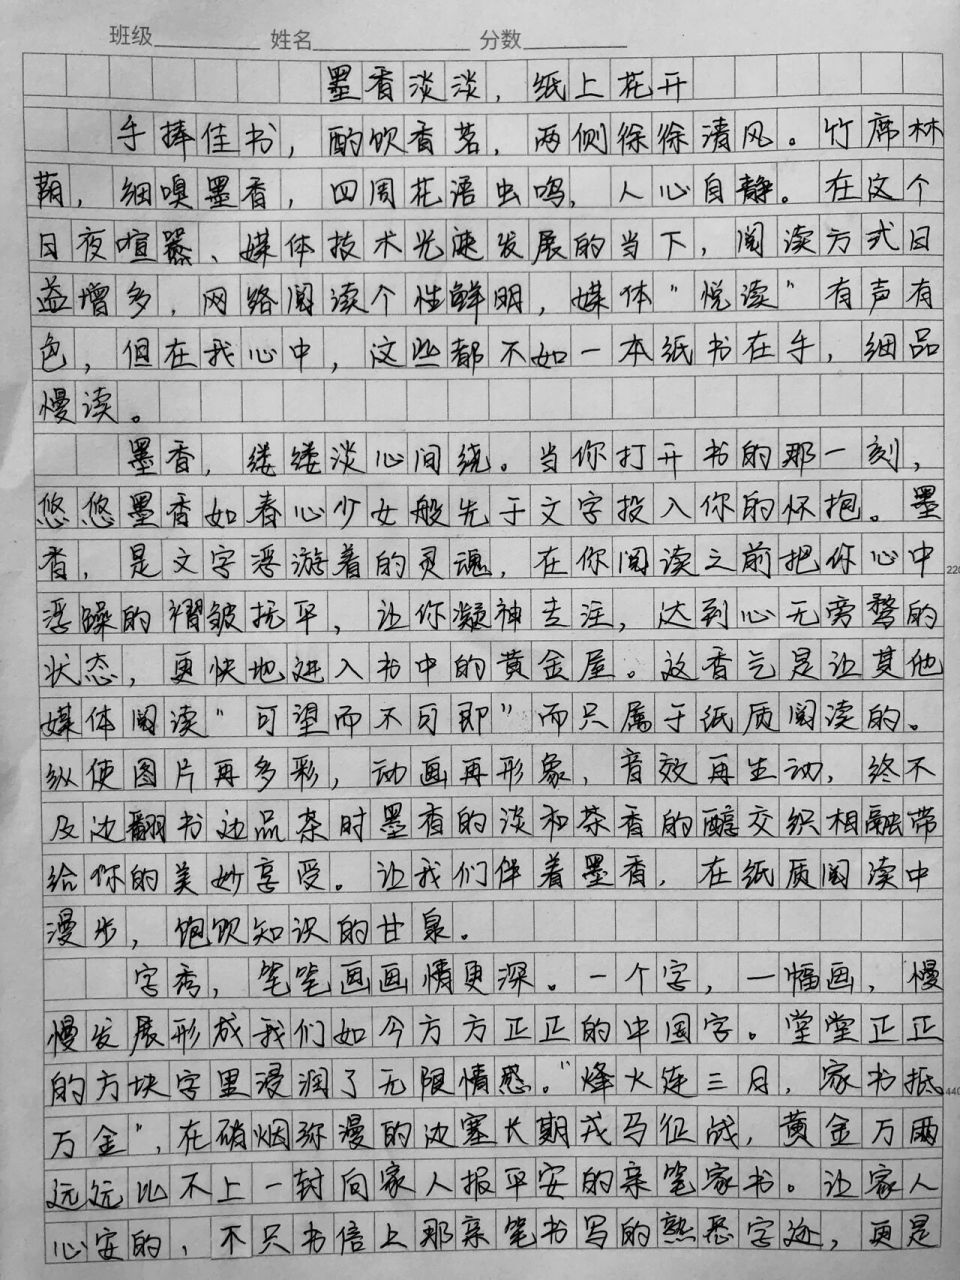 班级 姓名 分数
墨香淡淡，纸上花开
手捧佳书，酌饮香茗，两侧徐徐清风。竹席林
荫，细嗅墨香，四周花语虫鸣，人心自静。在这个
日夜喧嚣、媒体技术光速发展的当下，阅读方式日
益增多，网络阅读个性鲜明，媒体"悦读"有声有
色，但在我心中，这些都不如一本纸书在手，细品
慢读。
墨香，缕缕淡心间绕。当你打开书的那一刻，
悠悠墨香如春心少女般先于文字投入你的怀抱。墨
香，是文字浮游着的灵魂，在你阅读之前把你心中
浮躁的褶皱抚平，让你凝神专注，达到心无旁骛的
220
状态，更快地进入书中的黄金屋。这香气是让其他
媒体阅读"可望而不可即"而只属于纸质阅读的。
纵使图片再多彩，动画再形象，音效再生动，终不
及边翻书边品茶时墨香的淡和茶香的醇交织相融带
给你的美妙享受。让我们伴着墨香，在纸质阅读中
漫步，饱饮知识的甘泉。
字秀，笔笔画画情更深。一个字，一幅画，慢
慢发展形成我们如今方方正正的中国字。堂堂正正
的方块字里浸润了无限情感。"烽火连三月，家书抵
440
万金"，在硝烟弥漫的边塞长期戎马征战，黄金万两
远远比不上一封向家人报平安的亲笔家书。让家人
心安的，不只书信上那亲笔书写的熟悉字迹，更是